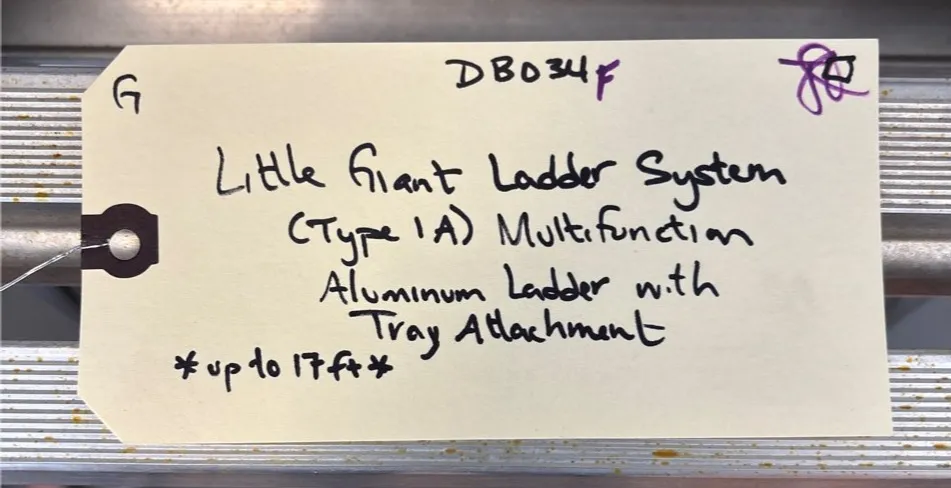 G
DB034F
Little Giant Ladder System
(Type 1A) Multifunction
Aluminum Ladder with
Tray Attachment
*up to 17ft*